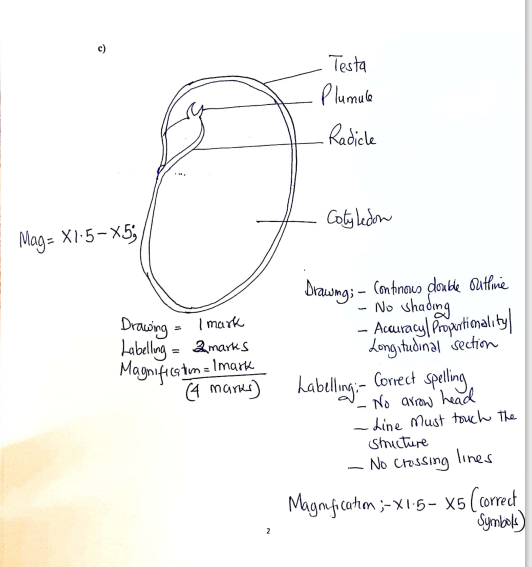 c)
Testa
Plumule
Radicle
Cotyledon
Mag = X1.5 - X5;
Drawing = 1 mark
Labelling = 2 marks
Magnification = 1 mark
(4 marks)
Drawing; - Continous double outline
- No shading
- Accuracy/Proportionality/
Longitudinal section
Labelling;- Correct spelling
- No arrow head
- Line Must touch the
structure
- No crossing lines
Magnification ;- X1.5 - X5 (correct
symbols)
2